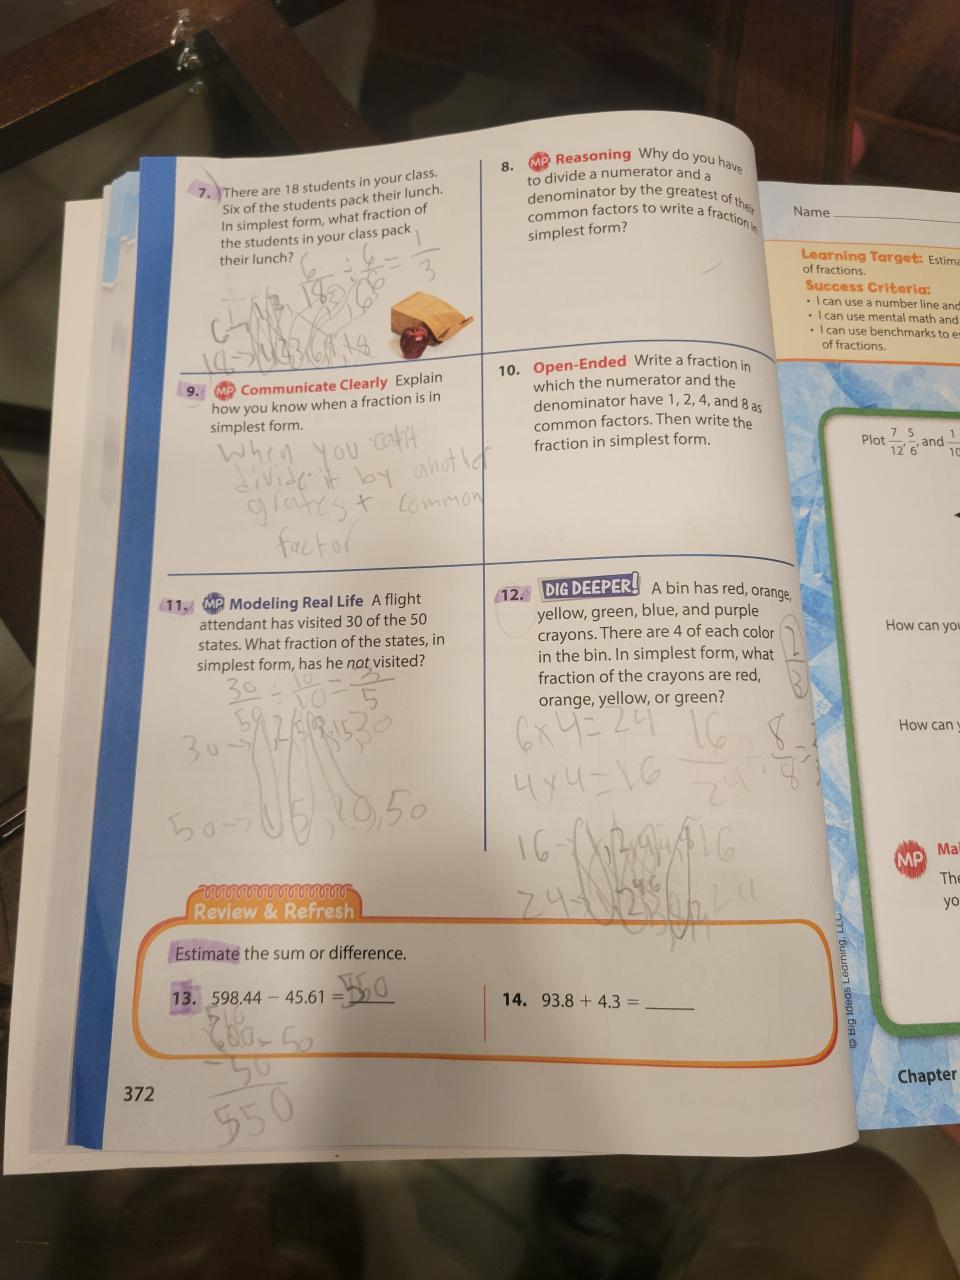 7. There are 18 students in your class.
Six of the students pack their lunch.
In simplest form, what fraction of
the students in your class pack
their lunch?
6/18 ÷ 6/6 = 1/3
8. MP Reasoning Why do you have
to divide a numerator and a
denominator by the greatest of their
common factors to write a fraction in
simplest form?
9. MP Communicate Clearly Explain
how you know when a fraction is in
simplest form.
When you can't
divide it by another
grates+ common
factor
10. Open-Ended Write a fraction in
which the numerator and the
denominator have 1, 2, 4, and 8 as
common factors. Then write the
fraction in simplest form.
11. MP Modeling Real Life A flight
attendant has visited 30 of the 50
states. What fraction of the states, in
simplest form, has he not visited?
30/50 ÷ 10/10 = 3/5
30→
50→
12. DIG DEEPER! A bin has red, orange,
yellow, green, blue, and purple
crayons. There are 4 of each color
in the bin. In simplest form, what
fraction of the crayons are red,
orange, yellow, or green?
6x4=24
4x4=16
16/24 ÷ 8/8 =
16
24
Review & Refresh
Estimate the sum or difference.
13. 598.44 − 45.61 = 550
600-50
-50
550
14. 93.8 + 4.3 =
372
© Big Ideas Learning, LLC
Name
Learning Target:
of fractions.
Success Criteria:
• I can use a number line and
• I can use mental math and
• I can use benchmarks to
of fractions.
Plot 7/12, 5/6, and
How can
How can
MP
Chapter